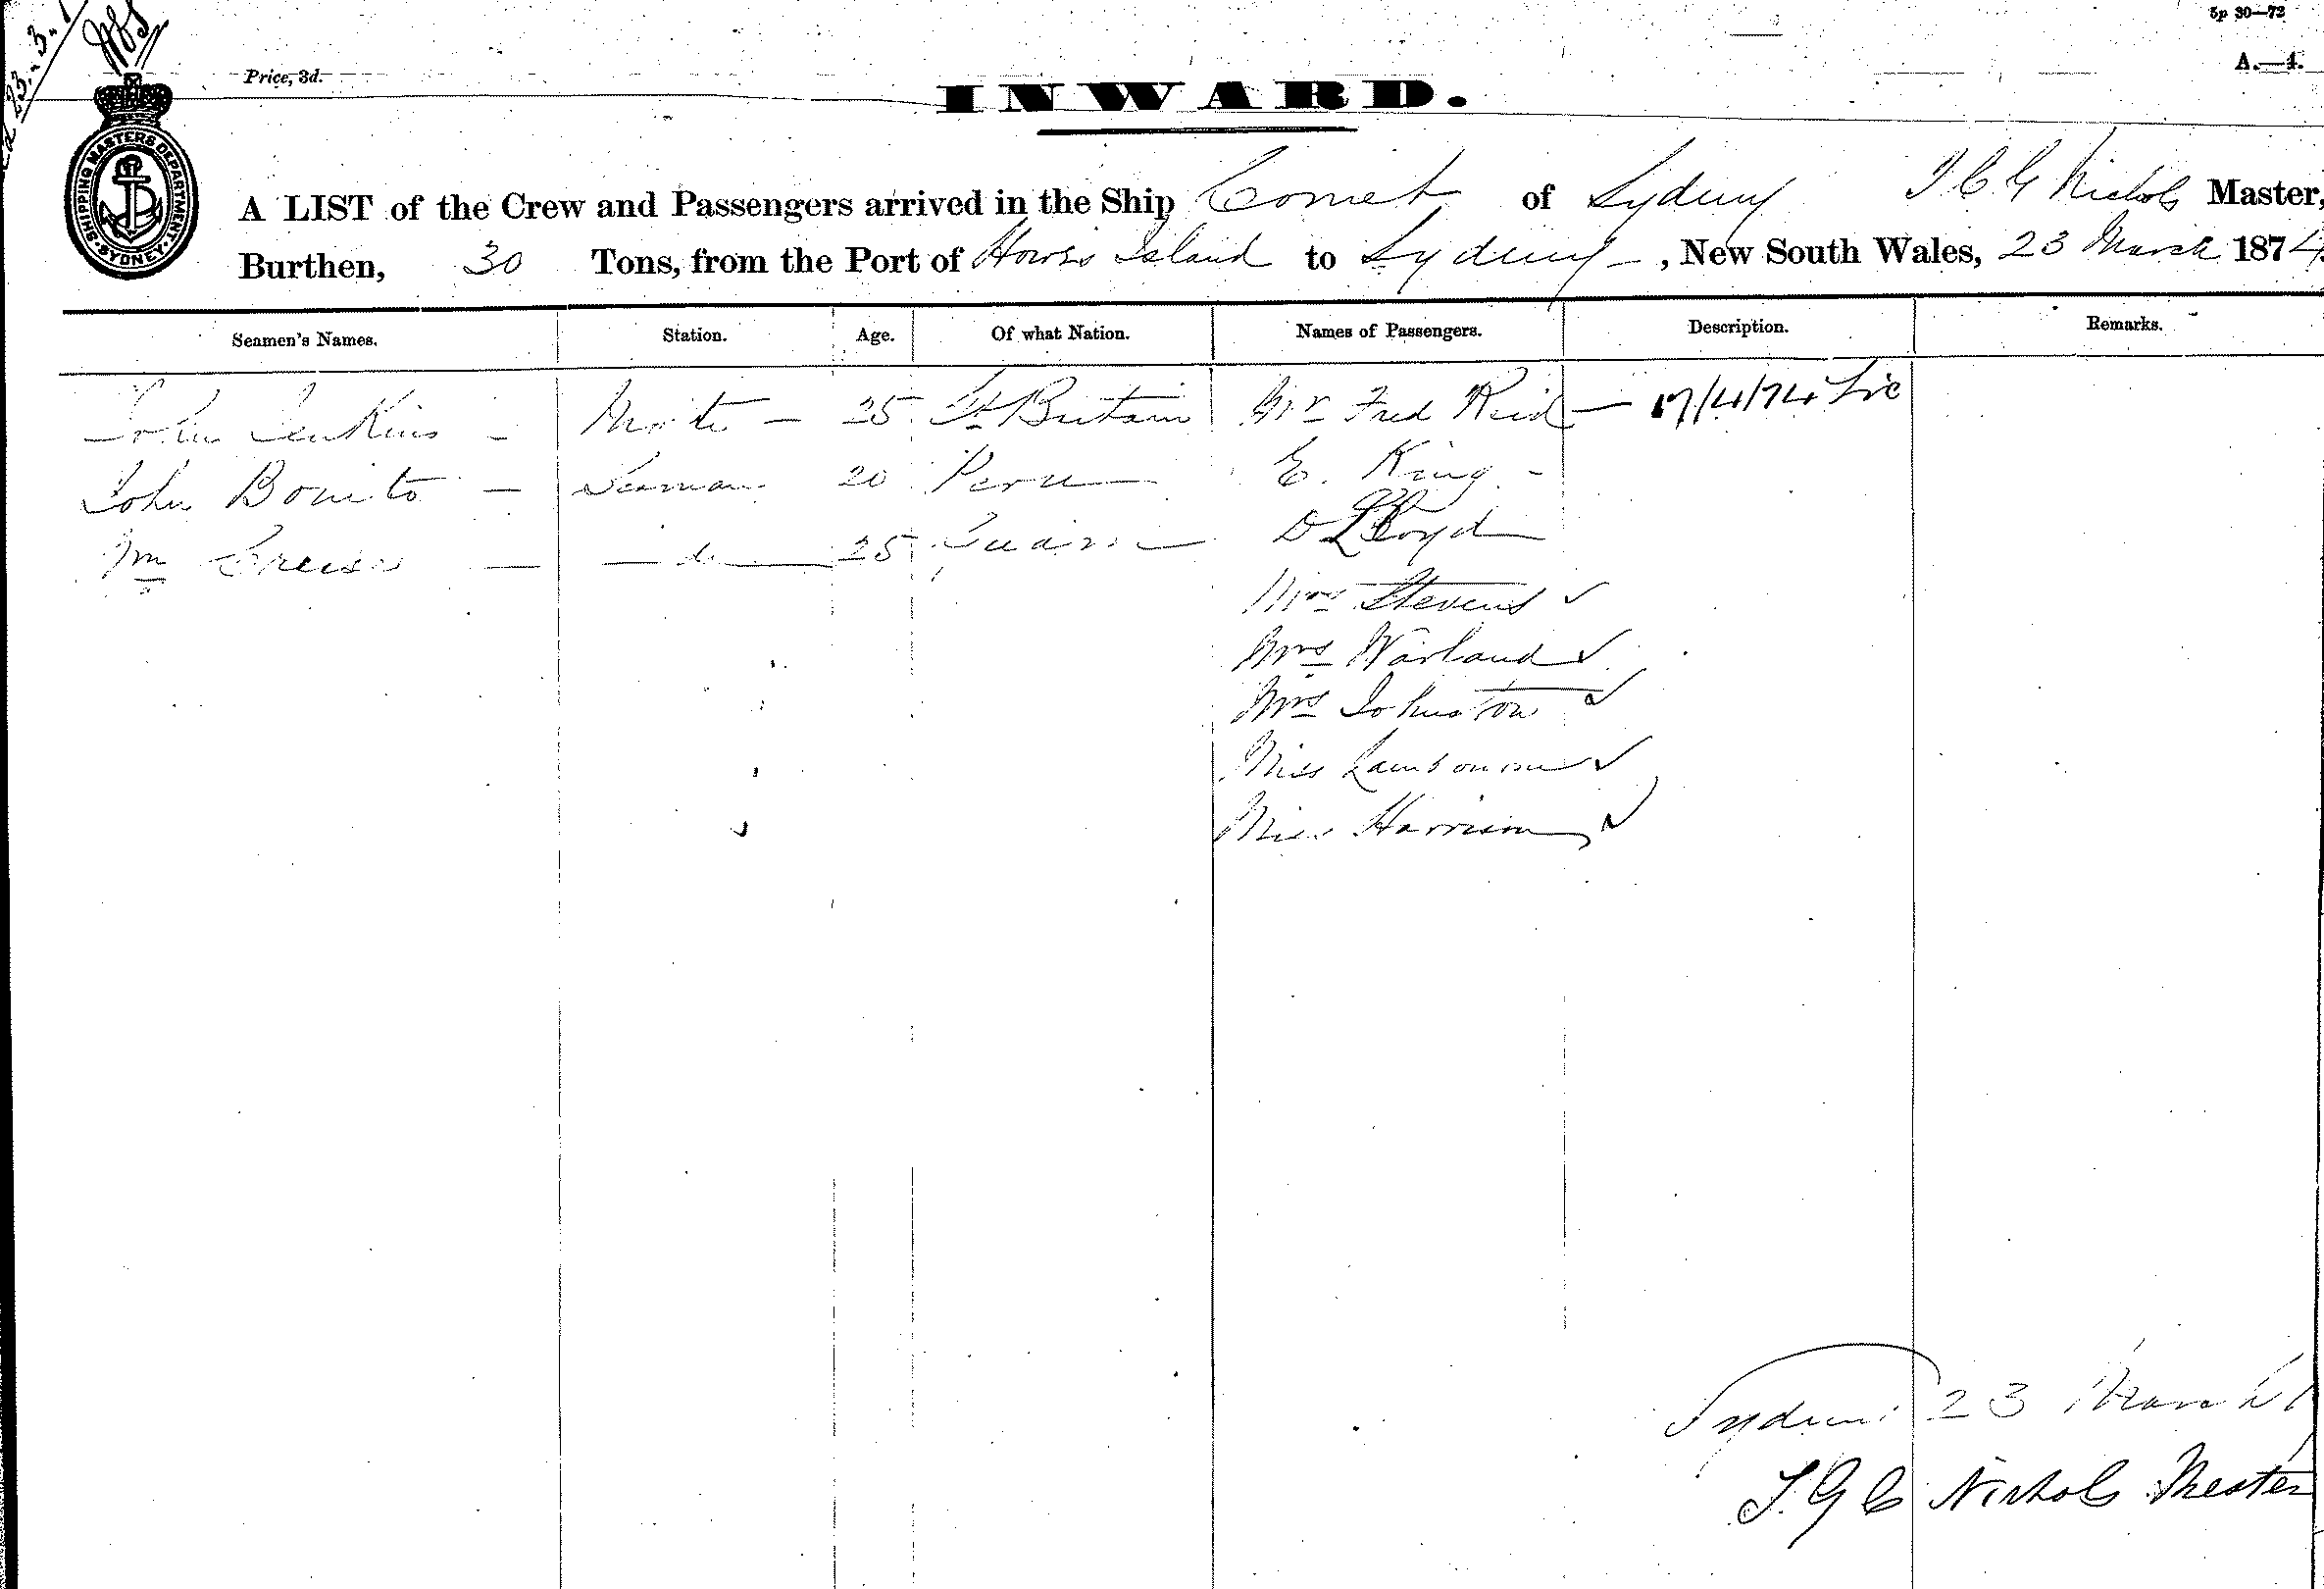 5p 30—72
23.. 3..
Price, 3d.
A.—4.
INWARD.
SHIPPING MASTERS DEPARTMENT SYDNEY
A LIST of the Crew and Passengers arrived in the Ship Comet of Sydney T C G Nichols Master,
Burthen, 30 Tons, from the Port of Howes Island to Sydney, New South Wales, 23 March 1874
Seamen's Names. Station. Age. Of what Nation. Names of Passengers. Description. Remarks.
John Jenkins — Mate — 25 Gt Britain Mr Fred Reid — 17/4/74
John Bonito — Seaman 20 Peru — E. King -
Wm — do — 25 D Lloyd
Mrs Stevens ✓
Mrs Warland ✓
Mrs Johnston ✓
Miss ✓
Miss Harrison ✓
Sydney 23 March
T. G C Nichols Master